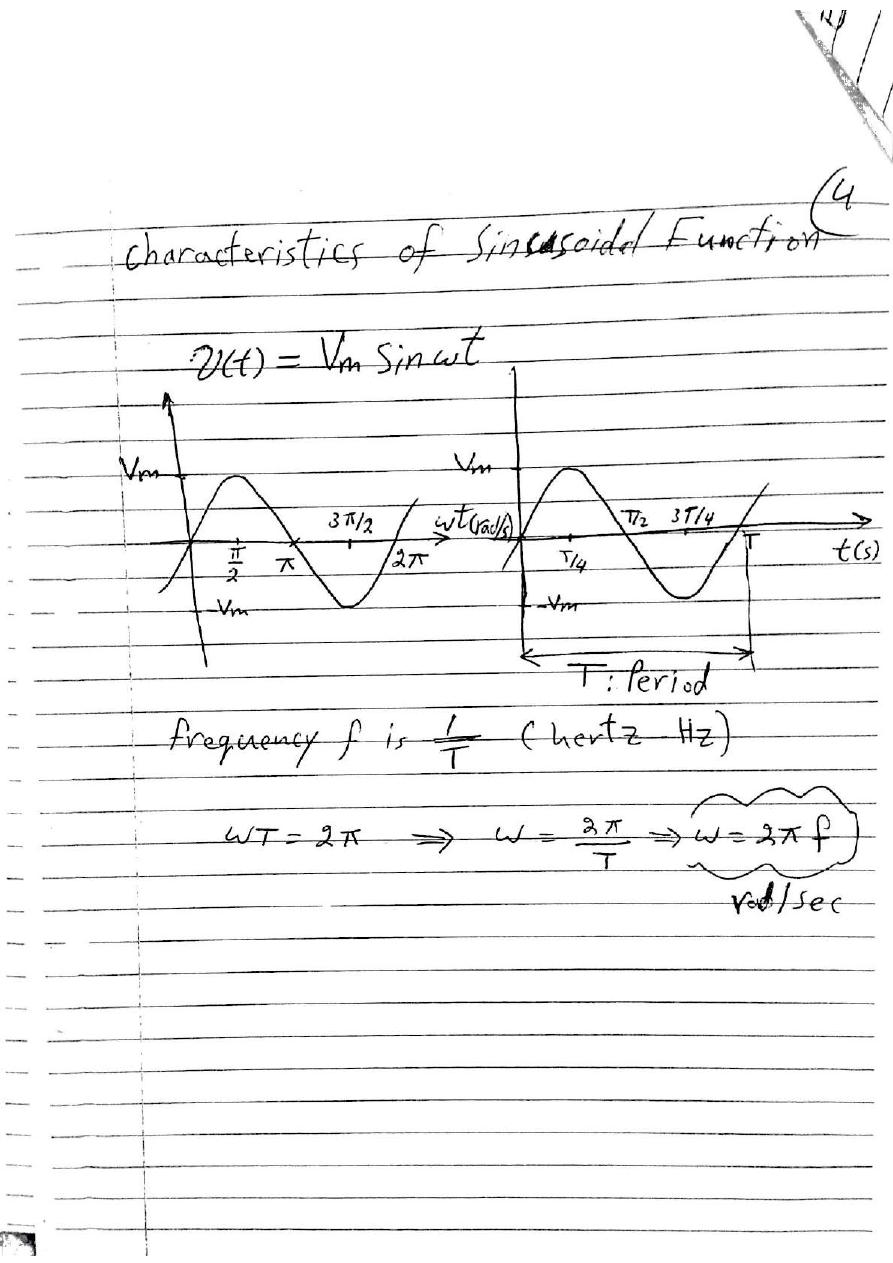 4
Characteristics of Sinusoidal Function
v(t) = Vm Sin ωt
Vm
-Vm
π/2
π
3π/2
2π
ωt(rad/s)
Vm
-Vm
T/4
T/2
3T/4
T
t(s)
T: Period
frequency f is 1/T (hertz Hz)
ωT = 2π ⇒ ω = 2π/T ⇒ ω = 2π f
rad/sec